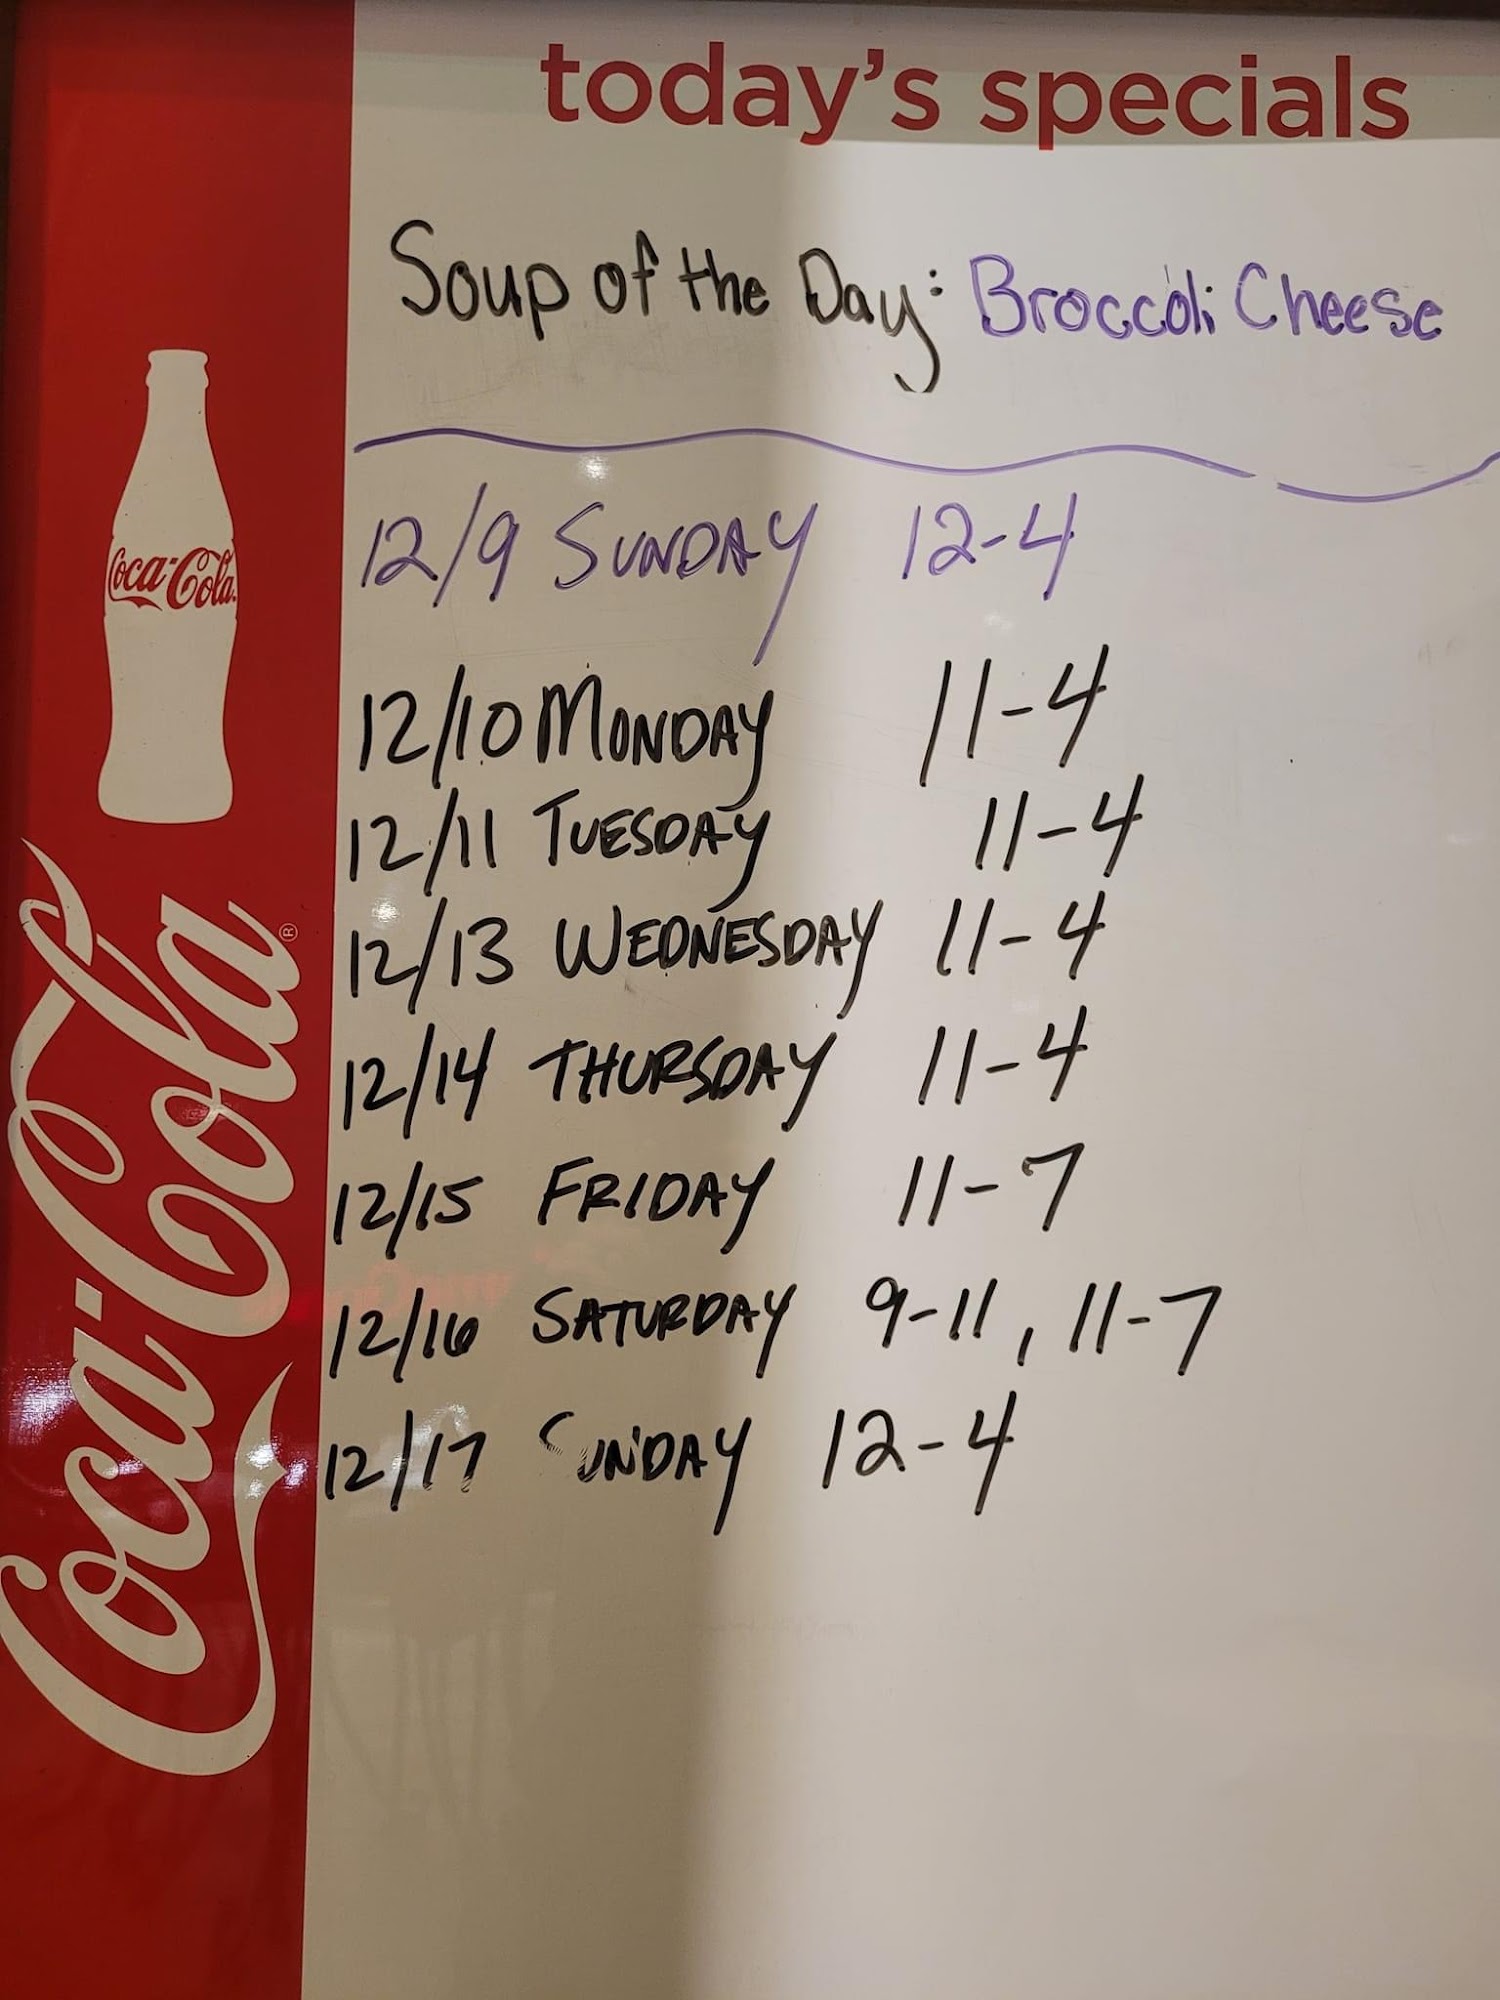 today's specials
Soup of the Day: Broccoli Cheese
12/9 SUNDAY 12-4
12/10 MONDAY 11-4
12/11 TUESDAY 11-4
12/13 WEDNESDAY 11-4
12/14 THURSDAY 11-4
12/15 FRIDAY 11-7
12/16 SATURDAY 9-11, 11-7
12/17 SUNDAY 12-4
Coca-Cola
Coca-Cola®